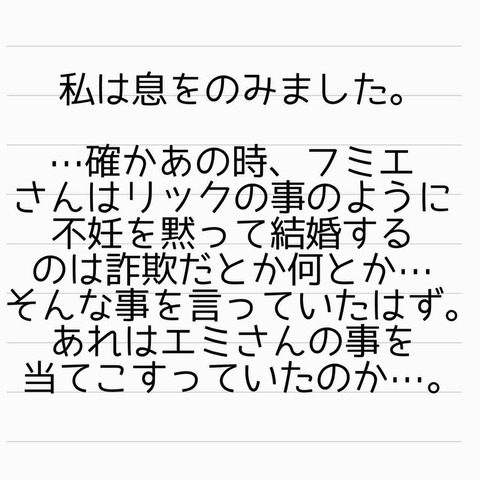 私は息をのみました。
…確かあの時、フミエ
さんはリックの事のように
不妊を黙って結婚する
のは詐欺だとか何とか…
そんな事を言っていたはず。
あれはエミさんの事を
当てこすっていたのか…。